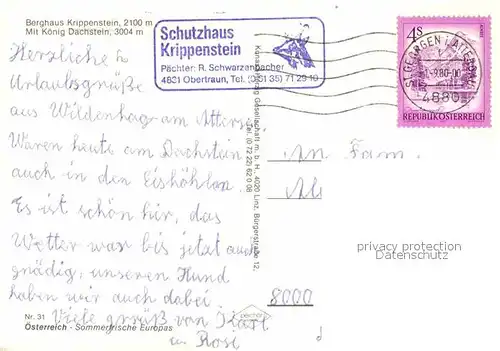 Berghaus Krippenstein, 2100 m
Mit König Dachstein, 3004 m
Schutzhaus
Krippenstein
Pächter: R. Schwarzenbacher
4831 Obertraun, Tel. (0 61 35) 71 29 10
4S
ST. GEORGEN I. ATTERGAU
-1.-9.80-00
4880
REPUBLIK ÖSTERREICH
Herzliche
Urlaubsgrüße
aus Wildenhag am Atters.
Waren heute am Dachstein
auch in den Eishöhlen.
Es ist schön hier, das
Wetter war bis jetzt auch
gnädig, unseren Hund
haben wir auch dabei
Viele grüß von Karl
u. Rosi
Nr. 31
Österreich - Sommerfrische Europas
Gesellschaft m. b. H., 4020 Linz, Bürgerstraße 12,
Tel. (0 72 22) 62 0 08
An Fam.
8000
privacy protection